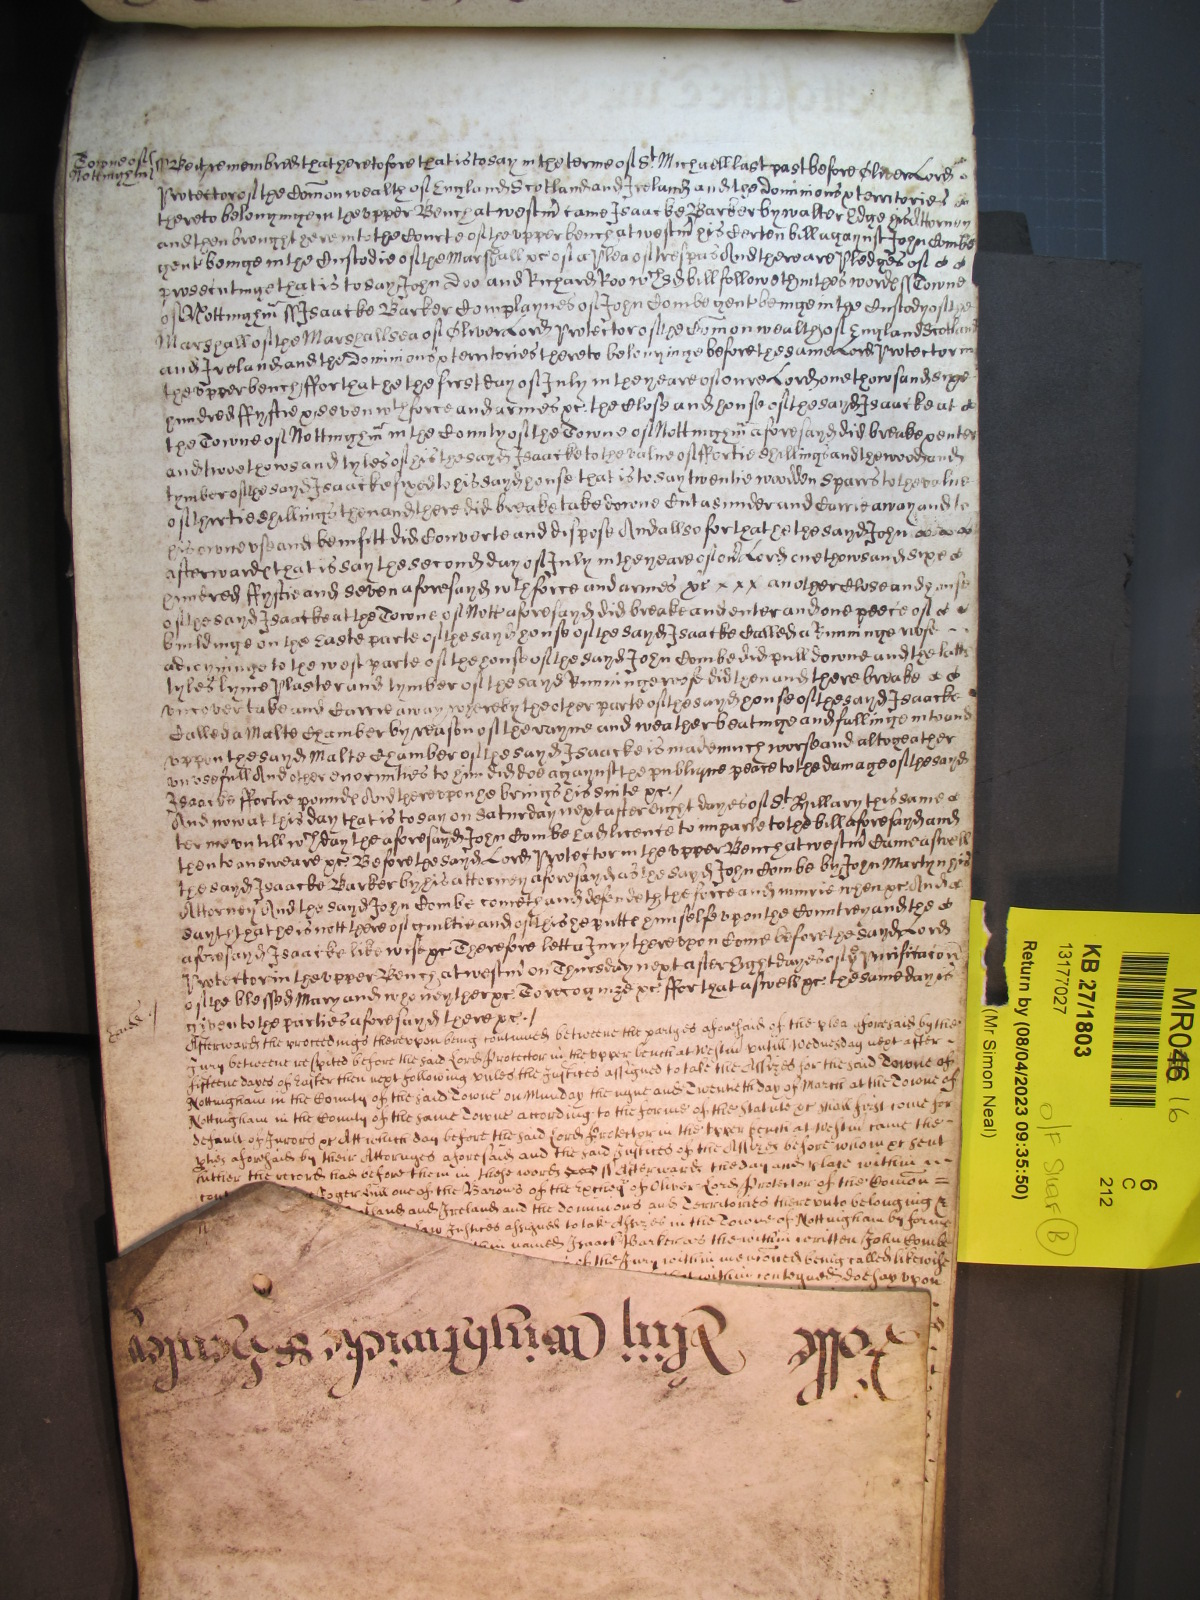 Towne of
Nottingham
Be it remembred that heretofore that is to say in the terme of St Michaell last past before Oliver Lord
Protector of the Comon wealth of England Scotland and Ireland and the Dominions & territories
thereto belonginge in the upper Bench at westm came Isaacke Barker by walter Edge his Attorney
and then brought here into the Courte of the upper bench at westm his Certen bill against John Combe
gent beinge in the Custodie of the Marshall &c of a Plea of trespas And there are Pledges of
prosecutinge that is to say John Doo and Richard Roo wch sd bill followeth in thes words ss Towne
of Nottinghm ss Isaacke Barker Complaynes of John Combe gent beinge in the Custody of the
Marshall of the Marshallsea of Oliver Lord Protector of the Comon wealth of England Scotland
and Ireland and the Dominions & territories thereto belonginge before the same Lord Protector in
the upper bench ffor that he the first day of July in the yeare of oure Lord one thowsand sixe
hundred ffyftie & seven wth force and armes &c. the Close and house of the sayd Isaacke at
the Towne of Nottinghm in the County of the Towne of Nottinghm aforesayd did breake & enter
and twoe thowsand tyles of his the sayd Isaacke to the value of ffortie shillings and the wood and
tymber of the sayd Isaacke fixed to his sayd house that is to say twentie wooden sparrs to the value
of thirtie shillings then and there did breake take downe Cut asunder and Carrie away and to
his owne use and benifitt did Converte and dispose And allso for that he the sayd John
afterwards that is say the second day of July in the yeare of our Lord one thowsand sixe
hundred ffyftie and seven aforesayd wth force and armes &c x x x another Close and house
of the sayd Isaacke at the Towne of Nott aforesayd did breake and enter and one peece of
buildinge on the Easte parte of the sayd house of the sayd Isaacke Called a Runninge roofe
adioyninge to the west parte of the house of the sayd John Combe did pull downe and the latts
tyles lyme Plaster and tymber of the sayd Runninge roofe did then and there breake
uncover take and Carrie away whereby the other parte of the sayd house of the sayd Isaacke
Called a Malte Chamber by reason of the rayne and weather beatinge and fallinge into and
uppon the sayd Malte Chamber of the sayd Isaacke is made much worse and altogeather
unusefull And other enormities to him did doe against the publique peace to the damage of the sayd
Isaacke ffortie pounds And thereupon he brings his suite &c./
And now at this day that is to say on Saturday next after Eight dayes of St Hillary this same
terme untill wch day the aforesayd John Combe had licence to imparle to the bill aforesayd and
then to answeare &c. Before the sayd Lord Protector in the upper Bench at westm Came aswell
the sayd Isaacke Barker by his attorney aforesayd as the sayd John Combe by John Martyn his
Attorney And the sayd John Combe cometh and defendeth the force and iniurie when &c. And
sayth that he is nott thereof guiltie and of this he putts himselfe upon the Countrey and the
aforesayd Isaacke likewise &c Therefore lett a Jury thereupon Come before the sayd Lord
Protector in the upper Bench at westm on Thursday next after Eight dayes of the Purificacon
of the blessed Mary and who neyther &c. To recognize &c. ffor that aswell &c. the same day is
given to the parties aforesayd there &c./
Afterwards the proceedings thereupon being continued betweene the partyes aforesaid of the plea aforesaid by the
Jury betweene respited before the said Lord Protector in the upper bench at Westm untill Wednesday next after
fifteene dayes of Easter then next following unles the Justices assigned to take the Assizes for the said Towne of
Nottingham in the County of the said Towne on Munday the nyne and Twentieth day of March at the Towne of
Nottingham in the County of the same Towne according to the forme of the Statute &c shall first come for
default of Jurors &c Att which day before the said Lord Protector in the upper bench at Westm came the
ptes aforesaid by their Attorneys aforesaid and the said Justices of the Assizes before whom &c sent
hither the record had before them in these words ss Afterwards the day and place within
Roger Hill one of the Barons of the Excheqr of Oliver Lord Protector of the Comon
Scotland and Ireland and the dominions and Territories thereunto belonging
Law Justices assigned to take Assizes in the Towne of Nottingham by forme
within named Isaack Barker as the within written John Combe
of the Jury within menconed being called likewise
within conteyned doe say upon
Rolle Xiiij Wightwicke & Henley
MR046 16
KB 27/1803
13177027
Return by (08/04/2023 09:35:50)
(Mr Simon Neal)
6
C
212
O/F Shelf B